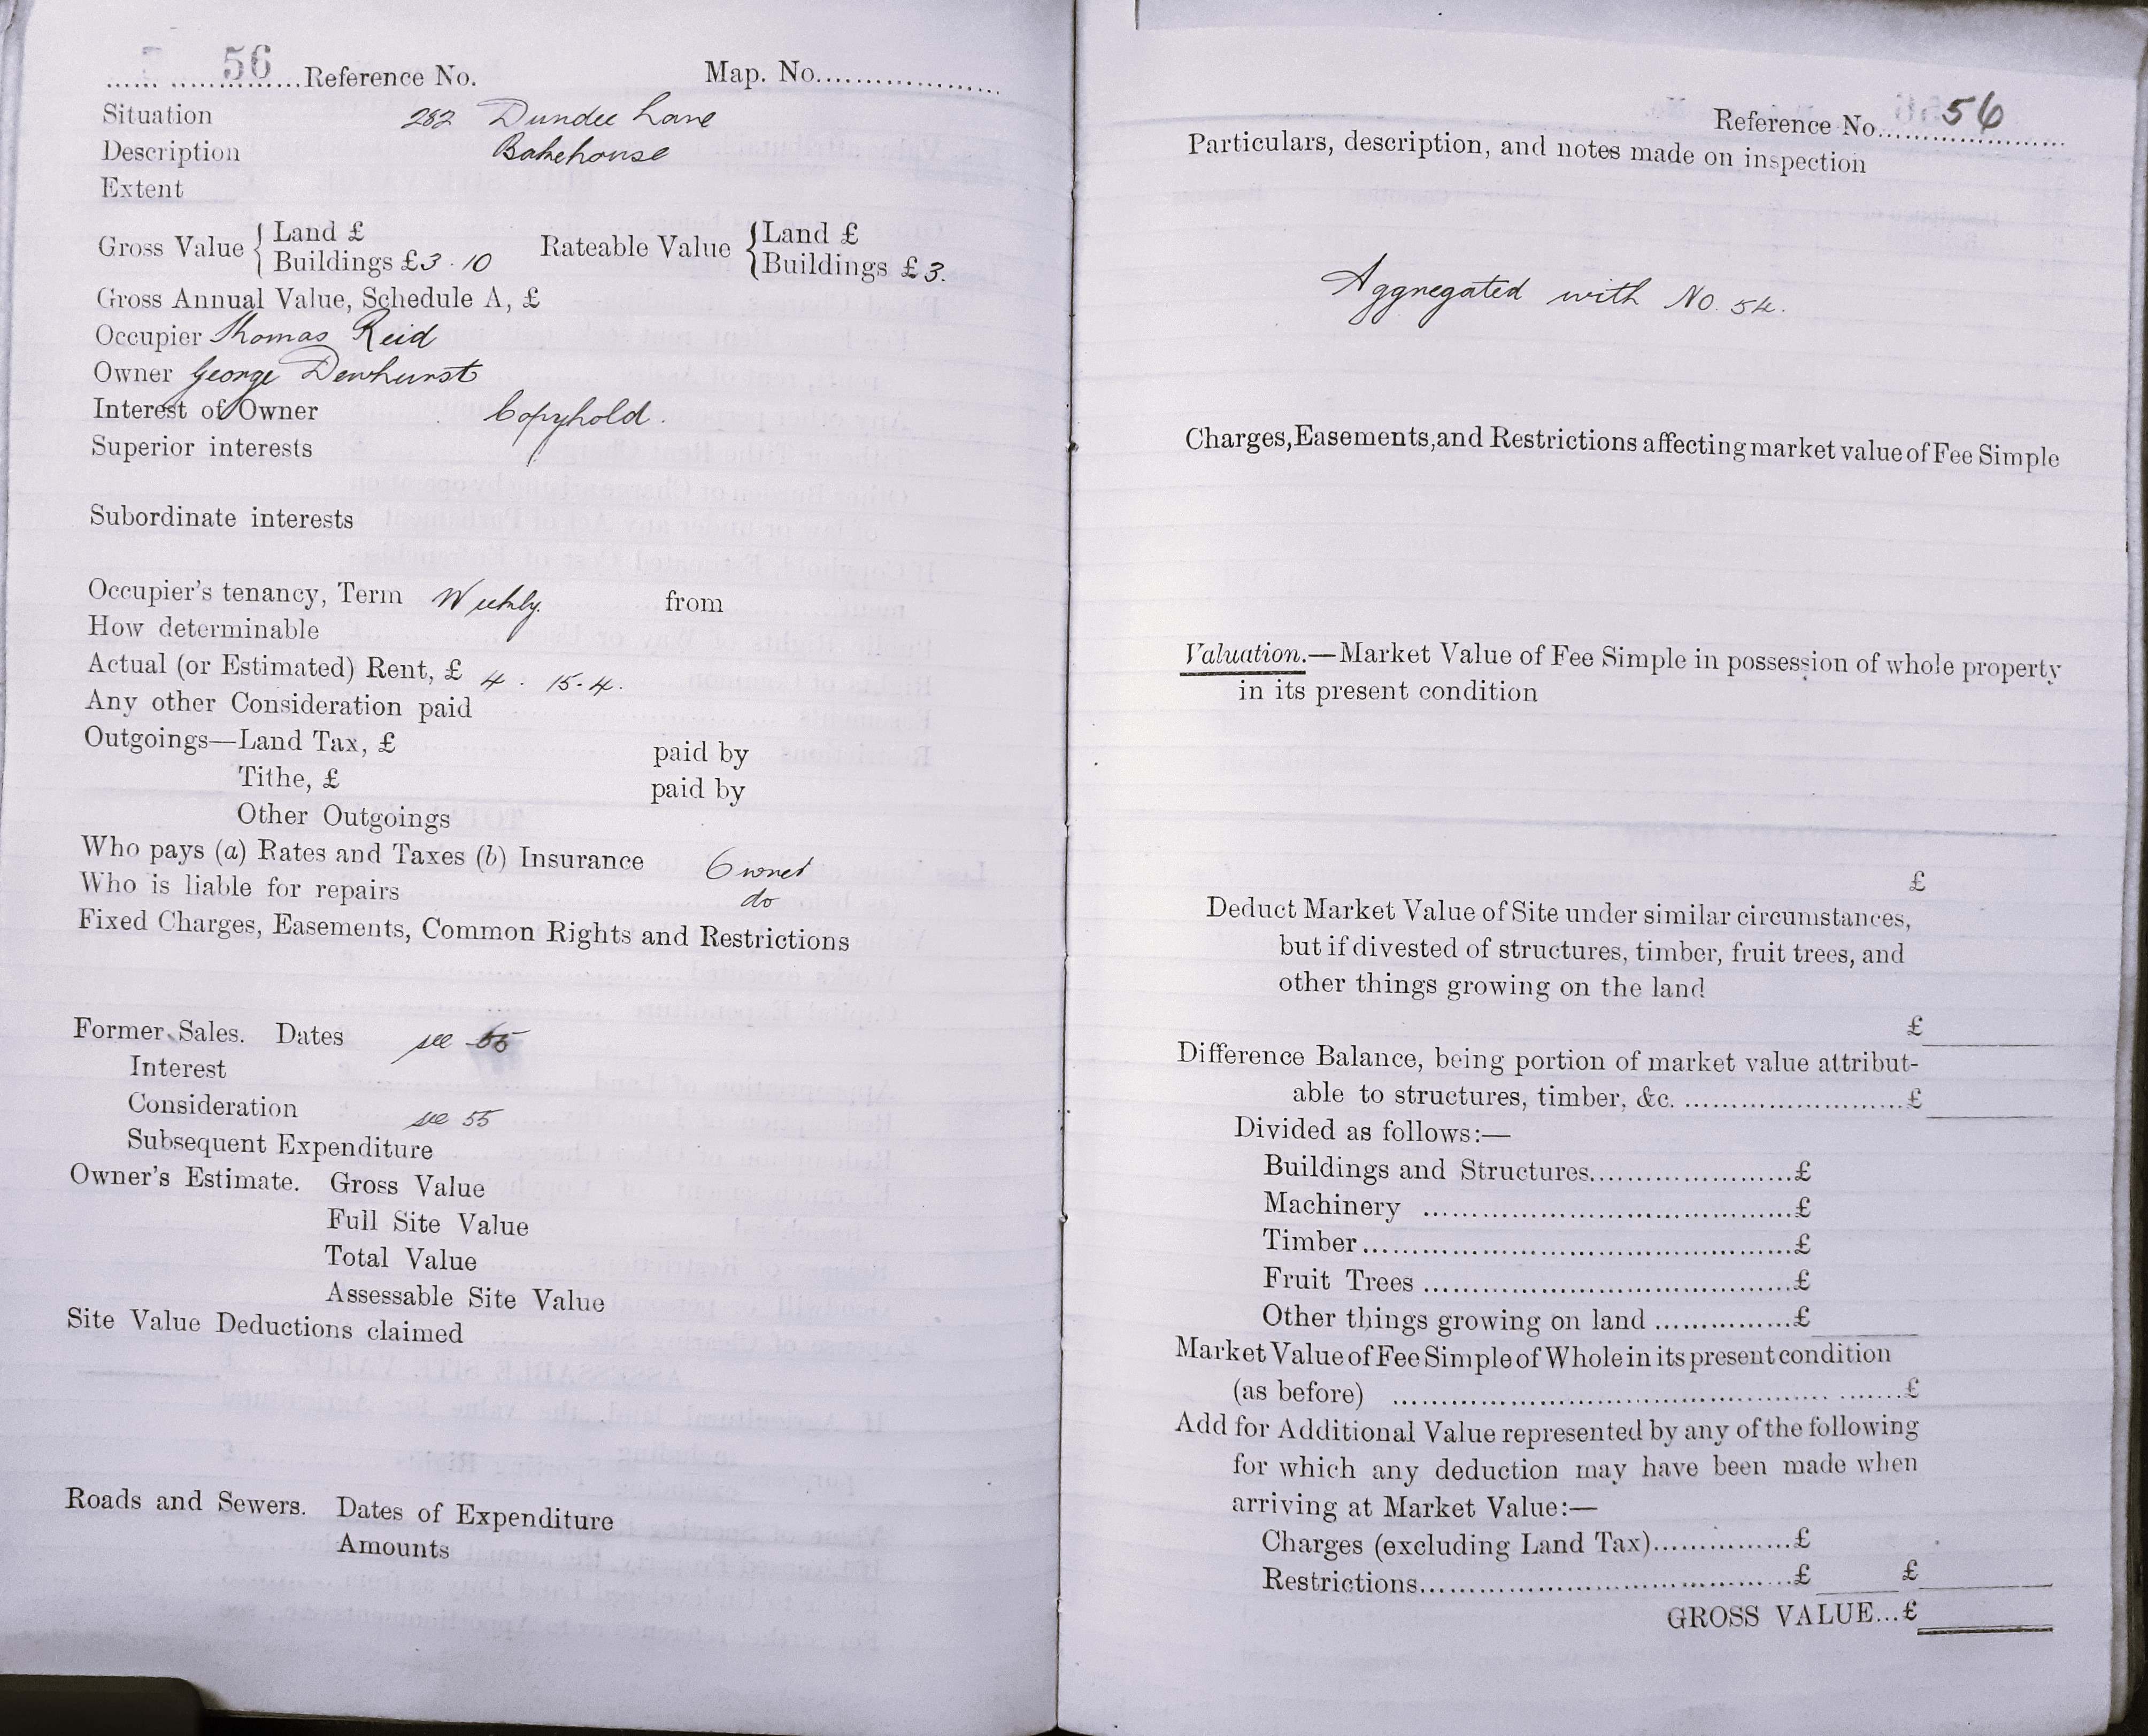 56 Reference No. Map. No.
Situation 282 Dundee Lane
Description Bakehouse
Extent
Gross Value { Land £
Buildings £3 . 10
Rateable Value { Land £
Buildings £3.
Gross Annual Value, Schedule A, £
Occupier Thomas Reid
Owner George Dewhurst
Interest of Owner Copyhold.
Superior interests
Subordinate interests
Occupier's tenancy, Term Weekly. from
How determinable
Actual (or Estimated) Rent, £ 4 . 15 . 4.
Any other Consideration paid
Outgoings—Land Tax, £ paid by
Tithe, £ paid by
Other Outgoings
Who pays (a) Rates and Taxes (b) Insurance Owner
Who is liable for repairs do
Fixed Charges, Easements, Common Rights and Restrictions
Former Sales. Dates see 55
Interest
Consideration see 55
Subsequent Expenditure
Owner's Estimate. Gross Value
Full Site Value
Total Value
Assessable Site Value
Site Value Deductions claimed
Roads and Sewers. Dates of Expenditure
Amounts
Reference No. 56
Particulars, description, and notes made on inspection
Aggregated with No. 54.
Charges, Easements, and Restrictions affecting market value of Fee Simple
Valuation.—Market Value of Fee Simple in possession of whole property
in its present condition
£
Deduct Market Value of Site under similar circumstances,
but if divested of structures, timber, fruit trees, and
other things growing on the land
£
Difference Balance, being portion of market value attribut-
able to structures, timber, &c. ........................£
Divided as follows:—
Buildings and Structures......................£
Machinery ......................................£
Timber............................................£
Fruit Trees ......................................£
Other things growing on land ...............£
Market Value of Fee Simple of Whole in its present condition
(as before) ......................................................£
Add for Additional Value represented by any of the following
for which any deduction may have been made when
arriving at Market Value:—
Charges (excluding Land Tax)...............£
Restrictions......................................£ £
GROSS VALUE...£